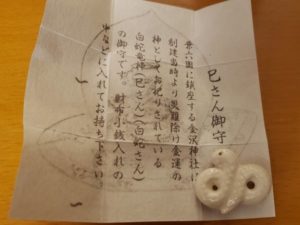 巳さん御守
兼六園に鎮座する金沢神社に
創建当時より災難除け金運の
神としてお祀りされている
白蛇竜神(巳さん)(白蛇さん)
の御守です。財布小銭入れの
中などに入れてお持ち下さい。